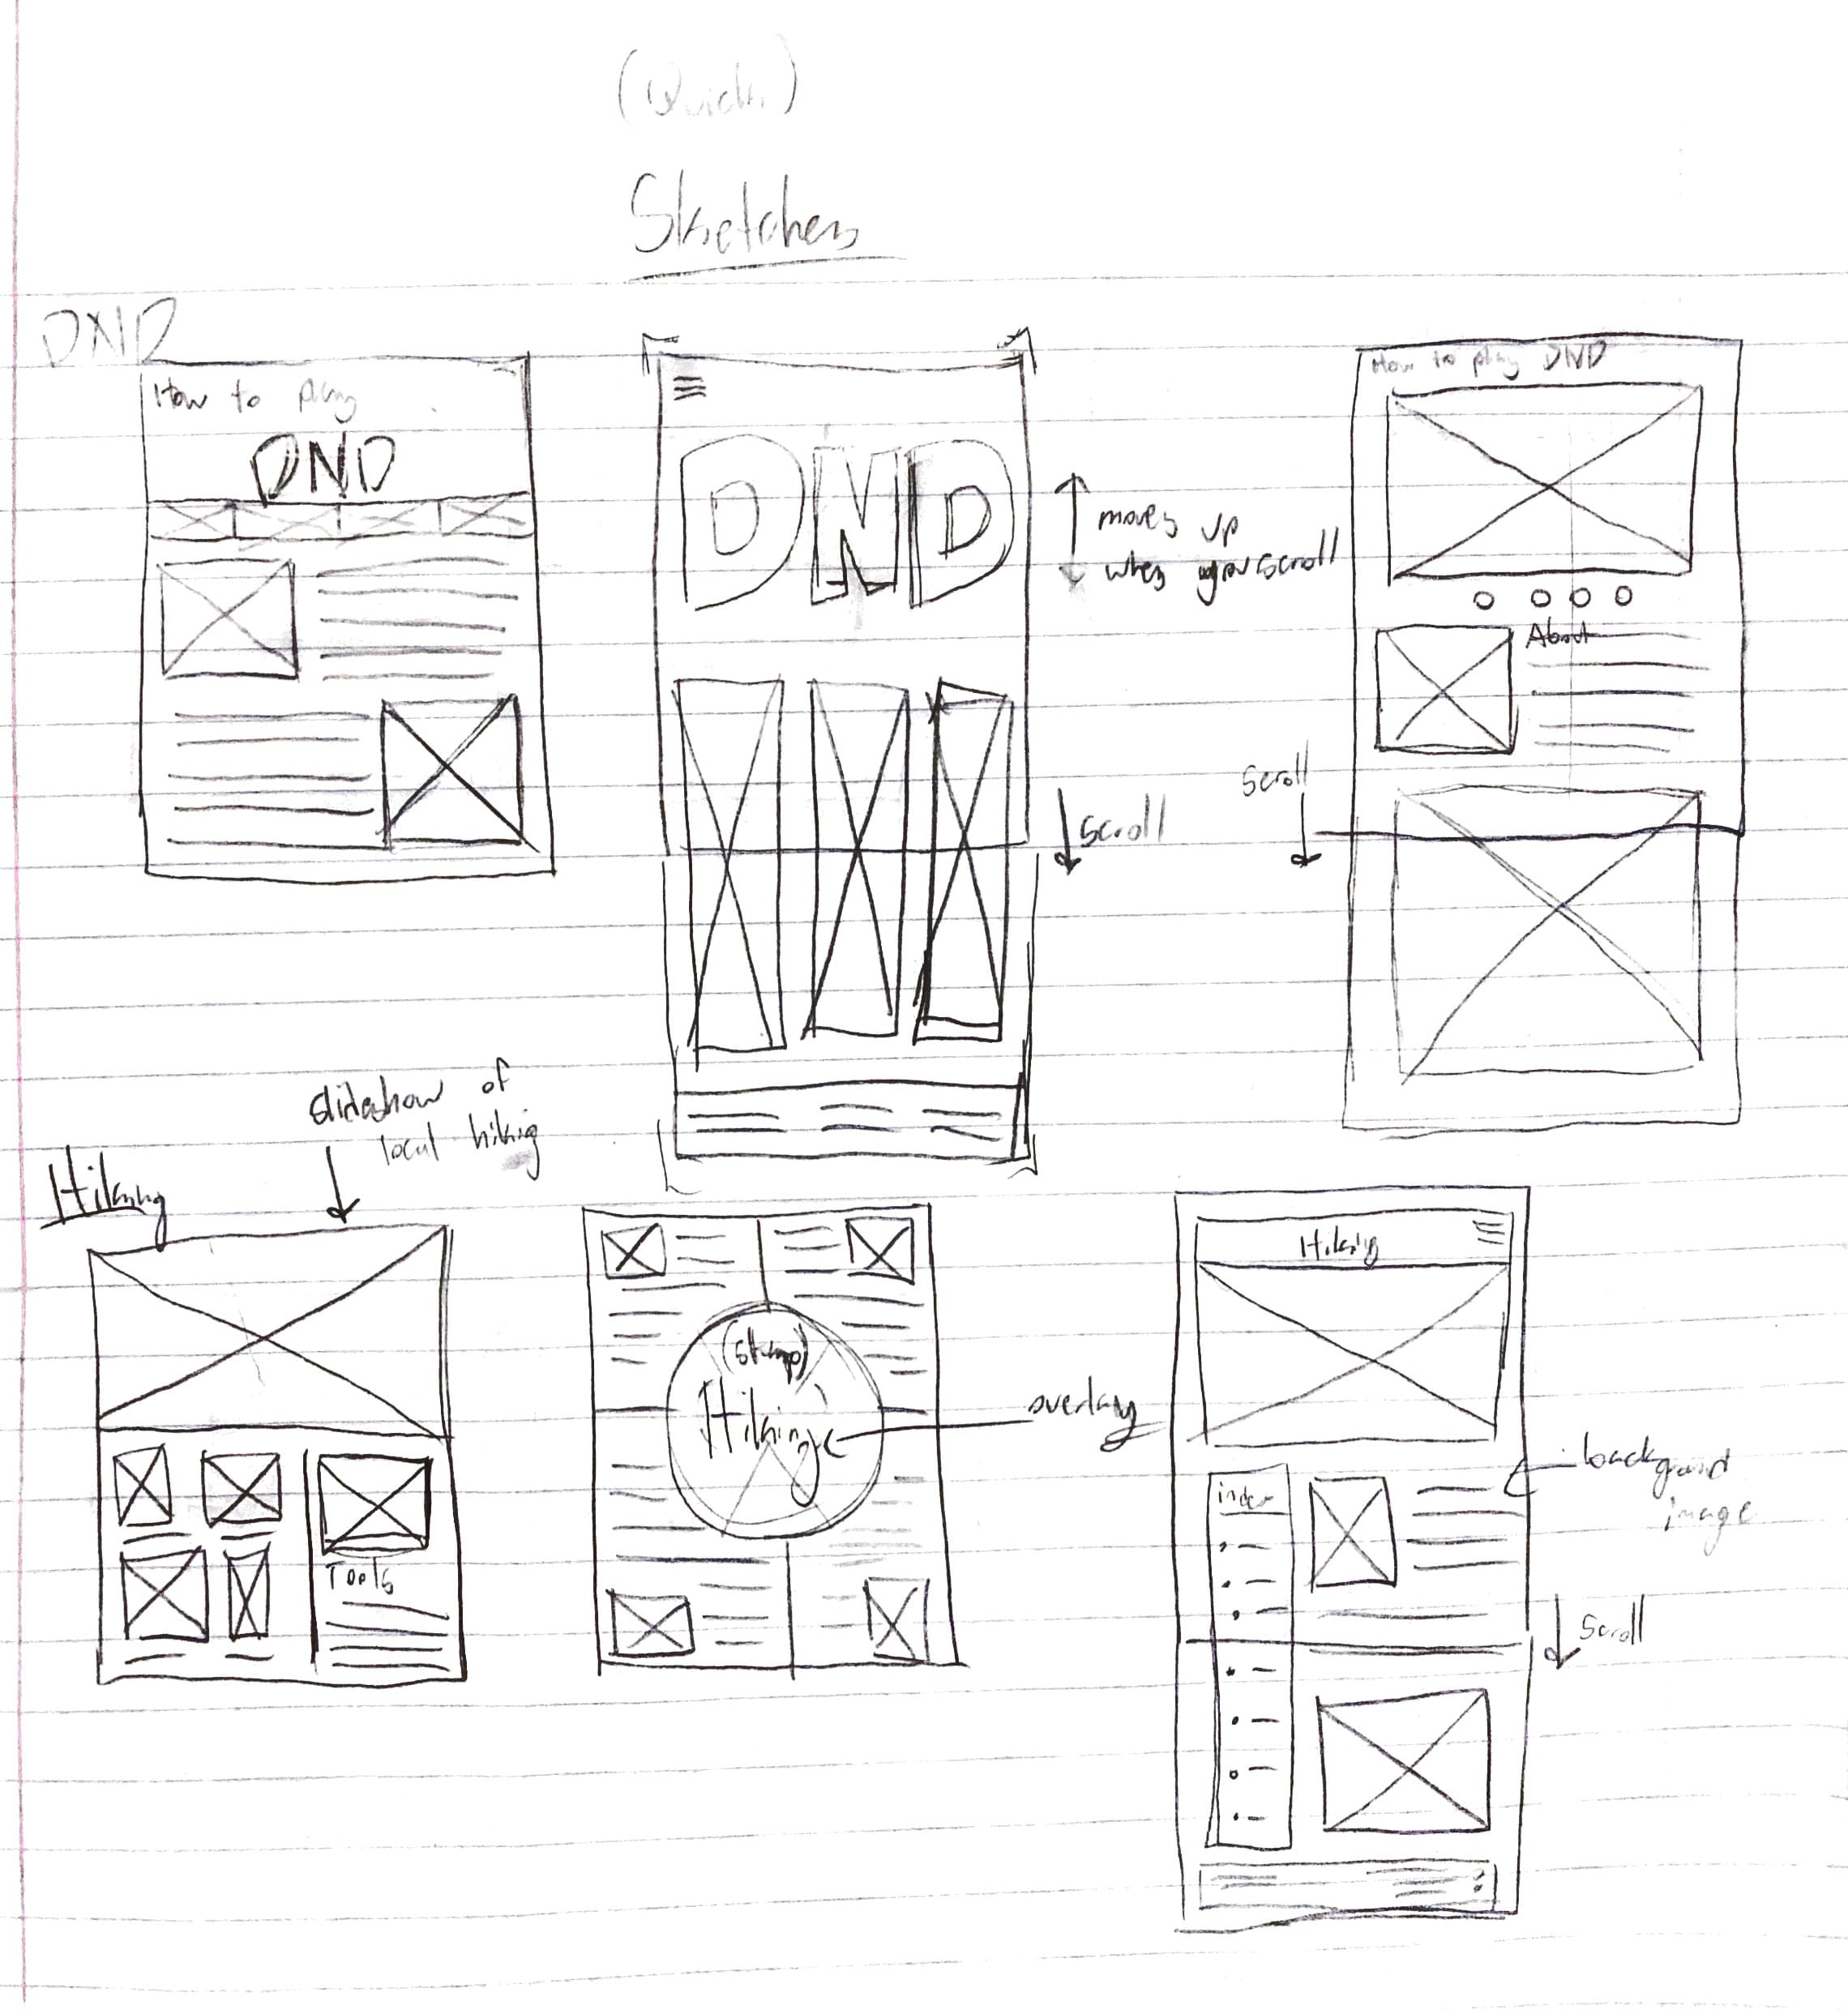 (Quick)
Sketches
DND
How to play
DND
DND
moves up
when you scroll
scroll
How to play DND
About
scroll
slideshow of
local hiking
Hiking
Topls
(stamp)
Hiking
overlay
Hiking
index
background
image
scroll